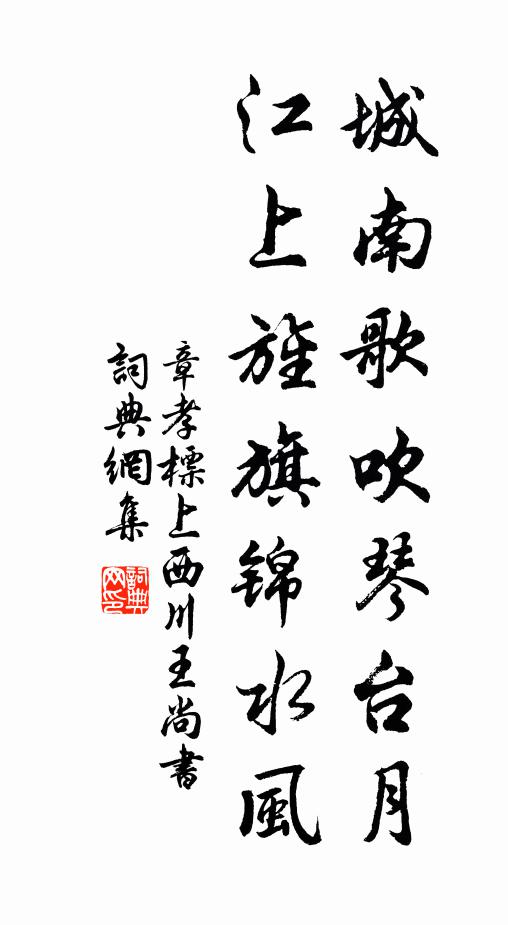 城南歌吹琴台月
江上旌旗锦水風
章孝標上西川王尚書
詞典網集
詞典網印